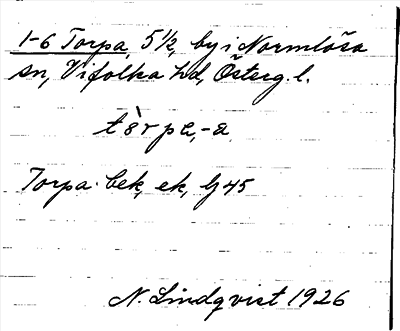 1-6 Torpa, 5½, by i Normlösa
sn, Vifolka hd, Österg. l.
tòrpa, -a
Torpa: bek, ek, lj 45
N. Lindqvist 1926